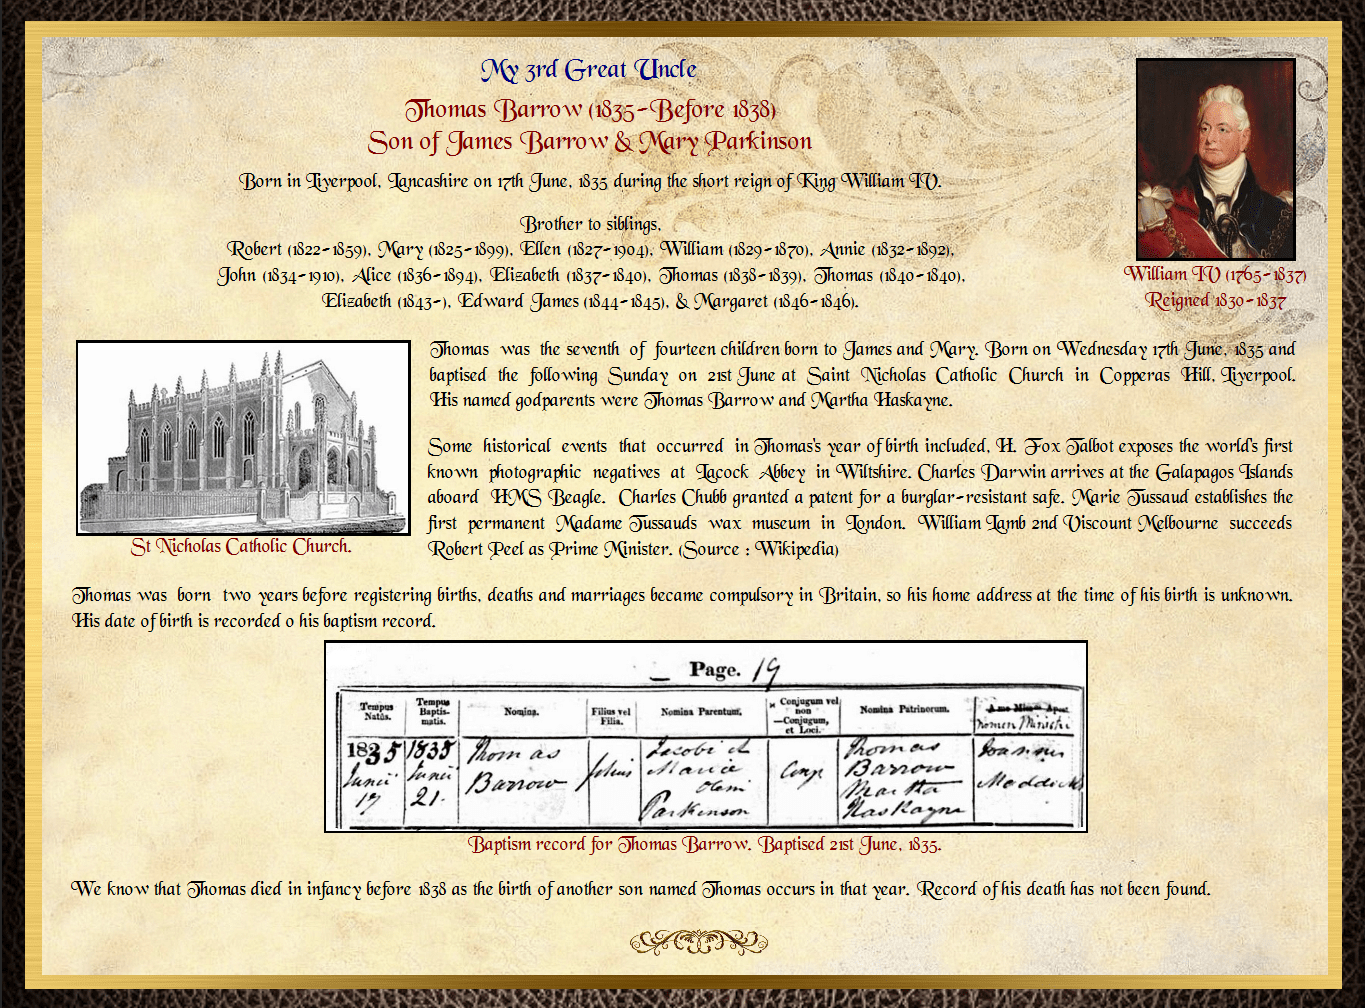 My 3rd Great Uncle
Thomas Barrow (1835-Before 1838)
Son of James Barrow & Mary Parkinson
Born in Liverpool, Lancashire on 17th June, 1835 during the short reign of King William IV.
Brother to siblings,
Robert (1822-1859), Mary (1825-1899), Ellen (1827-1904), William (1829-1870), Annie (1832-1892),
John (1834-1910), Alice (1836-1894), Elizabeth (1837-1840), Thomas (1838-1839), Thomas (1840-1840),
Elizabeth (1843-), Edward James (1844-1845), & Margaret (1846-1846).
William IV (1765-1837)
Reigned 1830-1837
Thomas was the seventh of fourteen children born to James and Mary. Born on Wednesday 17th June, 1835 and
baptised the following Sunday on 21st June at Saint Nicholas Catholic Church in Copperas Hill, Liverpool.
His named godparents were Thomas Barrow and Martha Haskayne.
Some historical events that occurred in Thomas's year of birth included, H. Fox Talbot exposes the world's first
known photographic negatives at Lacock Abbey in Wiltshire. Charles Darwin arrives at the Galapagos Islands
aboard HMS Beagle. Charles Chubb granted a patent for a burglar-resistant safe. Marie Tussaud establishes the
first permanent Madame Tussauds wax museum in London. William Lamb 2nd Viscount Melbourne succeeds
Robert Peel as Prime Minister. (Source : Wikipedia)
St Nicholas Catholic Church.
Thomas was born two years before registering births, deaths and marriages became compulsory in Britain, so his home address at the time of his birth is unknown.
His date of birth is recorded o his baptism record.
Page. 19
Tempus Natûs.
Tempus Baptis-matis.
Nomina.
Filius vel Filia.
Nomina Parentum.
Conjugum vel non —Conjugum, et Loci.
Nomina Patrinorum.
Nomen Ministri
1835 Junii 17
1835 Junii 21.
Thomas Barrow
filius
Jacobi et Maria olim Parkinson
Conj
Thomas Barrow Martha Haskayne
Joannes
Baptism record for Thomas Barrow. Baptised 21st June, 1835.
We know that Thomas died in infancy before 1838 as the birth of another son named Thomas occurs in that year. Record of his death has not been found.